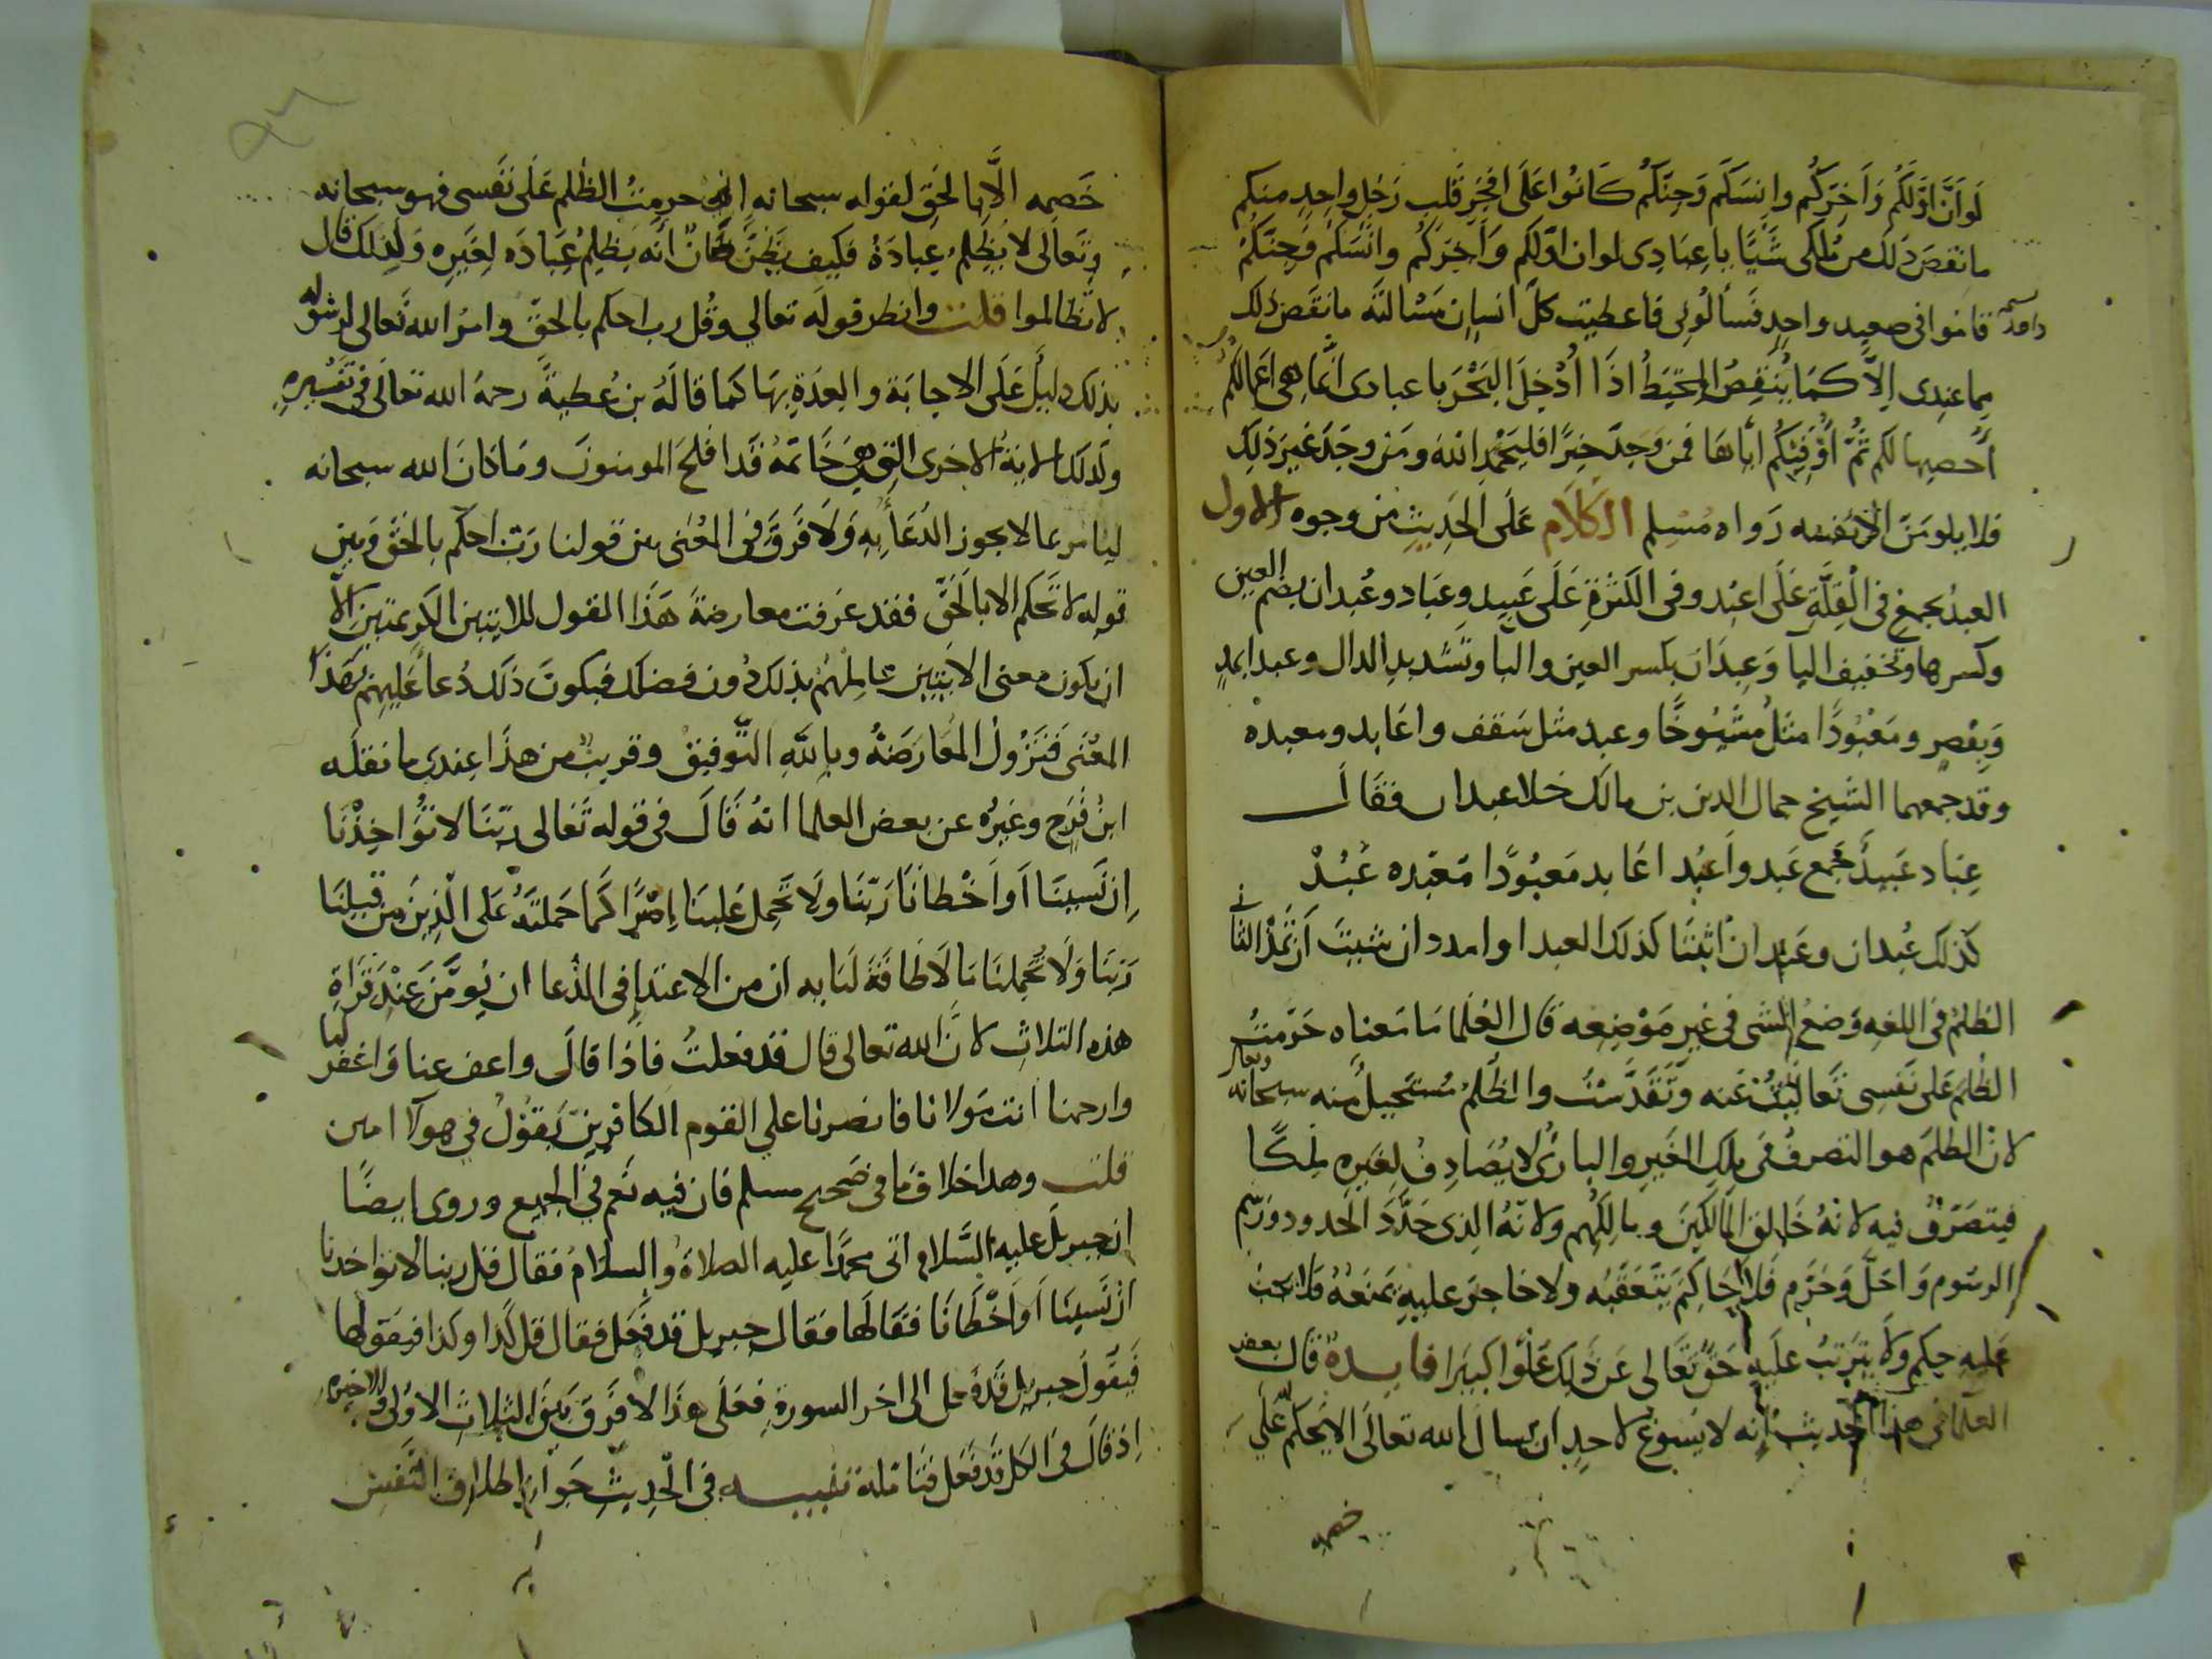 لَو اَنَّ اوَّلَكُم وَاَخِرَكُم وانِسَكُم وَجِنَّكُم كَانوُا عَلَى افْجَرِ قَلبِ رَجُلٍ واحِدٍ منكم
ما نقصَ ذَلكَ من مُلكى شَيًا يا عِبَادِى لو ان اوّلكم وَاَخِرَكُم وانْسَكُم وَجِنَّكُمْ
قاموا فى صعيد واحِدٍ فَسَألُونِى فاعطيت كلَّ انسانٍ مَسْالتَه ما نقَصَ ذلك
مِما عندِى اِلاَّ كمَا يُنْقِصُ المِخيَطُ اذَا اُدْخِلَ البَحْرَ يا عبادى انَّما هى اعمالكُم
اُحصِيها لكم ثُمَّ اُوَفّيِكُم ايَّاهَا فمن وَجدَ خيرًا فليَحْمَدِ اللهَ ومَن وجَدَ غيَر ذلِكَ
فلا يلومَنَّ الا نفسه رَواه مُسْلِم الكَلَام عَلَى الحَدِيثِ من وجوه الاول
العبدُ يجمع فى القِلَّةِ عَلَى اعبُد وفى الكَثرَةِ عَلَى عَبِيدٍ وعِبَاد وعُبدان بضم العين
وكسرها وتخفيف البا وَعِبِدّان بكسر العين والبا وتشديد الدال وعبدا بمدٍ
وَبِقْصرٍ ومَعْبُودًا مثلُ مَشيُوخًا وعبد مثل سَقف واعَابد ومعبده
وقد جمعهما الشيخ جمال الدين بن مالك خلا عبدان فقَالَ
عِبَاد عَبيدٌ جَمع عَبد واَعبُد اعَابد مَعبُودًا مَعْبَده عُبُدْ
كذلك عُبدان وعبدان اثبتنا كذلك العبدا وامدد ان شيتَ أن تَمُدْ الثانى
الظلمُ فى اللغه وَضعُ الشى فى غير مَوْضِعه قال العُلَما مَا مَعناه حَرَّمتُ
الظلمَ عَلَى نَفسِى تَعَاليتُ عَنه وَتَقَدَّسْتُ والظُلمُ مُستَحيلٌ منه سبحانه وتعالى
لانّ الظلمَ هو التصرفُ فى مِلكِ الغَير والبارئ لا يُصَادِفُ لغيَرهِ مِلكًا
فيتصَرّفُ فيه لانهُ خَالق المَالكِينَ ومالِكُهم ولانّهُ الذِى حَدَّدَ الحدود ورَسم
الرسُوم وَاحَلَّ وَحَرَّم فَلا حَاكِمَ يَتَعَقّبُه ولا حَاجزَ عليهِ يَمنَعُهُ فلا يجب
عَليه حكم ولا يتَرَتبُ علَيهِ حَقٌّ تَعَالى عَن ذَلِكَ عُلُوًّا كبيَرا فايدة قال بعض
العلما فى هذا الحديث اِنه لا يَسُوغُ لاحدٍ ان يسال الله تعالَى الا يحكم علَى
خصمه
خَصمِه الَّا بالحَقِ لقوله سبحانه انى حرمتُ الظلم عَلَى نَفسى فهو سبحانه
وتَعالى لا يَظلِمُ عِبادَهُ فكيف يَظُنُّ ظَانٌّ انّه يَظلِمُ عِبَادَه لِغَيرِه وَلذلك قَال
لا تظالموا قلت وانظر قوله تعالى وقُل رب احكم بالحقّ وامرُ الله تَعالى لرسُوله
بذلك دليلٌ عَلَى الاجابَة والعِدَةِ بها كما قالَهُ بن عُطيةَ رحمهُ الله تعَالَى فى تَفْسيرِهِ
ولذلك الايةُ الاخرى التى هِىَ خَاتمَهُ قَد افلحَ المومنونَ ومَا كانَ الله سبحانه
ليامر بما لا يجوز الدُعَأ بِهِ وَلَا فَرقَ فى المعْنى بين قولنا رَبّ احكم بالحقّ وَبين
قوله لا تَحكم الا بالحَقّ فقد عَرفت معارضةَ هَذا القول للايتين الكَريمتين الاّ
ان يكون معنى الايتين عامِلهُم بذلك دُون فضلك فيكونَ ذَلكَ دُعا عَليهِم بهَذا
المعْنى فَتزُولُ المعُارَضةُ وبِاللهِ التّوفيقُ وقريبٌ من هذَا عِندى ما نقلَه
ابنُ فَرَحٍ وغيرُه عن بعض العلما انهُ قَالَ فى قوله تَعَالى رَبّنَا لا تؤُاخِذْنَا
اِن نَسينَا اَو اَخْطانَا رَبّنَا ولَا تَحْمِل عَلَينا اِصْرًا كَما حَملتَهُ عَلى الّذِينَ مِن قَبلنَا
رَبنَا وَلَا تُحَمِّلنَا مَا لَا طَاقَةَ لَنا به ان من الاعتداِ فى الدُعا ان يُومّنَ عِنْدَ قَراةِ
هذه الثلاثِ لانَّ الله تعالى قال قد فعلتُ فاذَا قالَ واعف عنا وَاغفر لنا
وارحمنا انت مَولانا فانصرنا على القوم الكافرينّ يَقوُلُ فى هولآ امين
قلت وهذا خلاف مَا فى صَحيح مسلم فان فيه نَعم فى الجميع وروى ايضًا
ان جبريلَ عليه السَّلام اتى محمدًا عليه الصلاة والسلام فقال قل ربنا لا تواخذنا
ان نَسِينَا اَو اَخْطَانَا فقَالَها فقَال جبريل قد فَعَل فقال قل كَذا وكذا فيقولها
فَيقَولُ جبريل قَد فعل الى اخر السورةِ فعَلَى هَذا لا فَرقَ بَينَ الثلاثِ الاوُلى والاخيره
اِذ قالَ فى الكل قد فَعَل فتَامله تنبيه فى الحَديثِ جَوازُ اطلاق النَفس